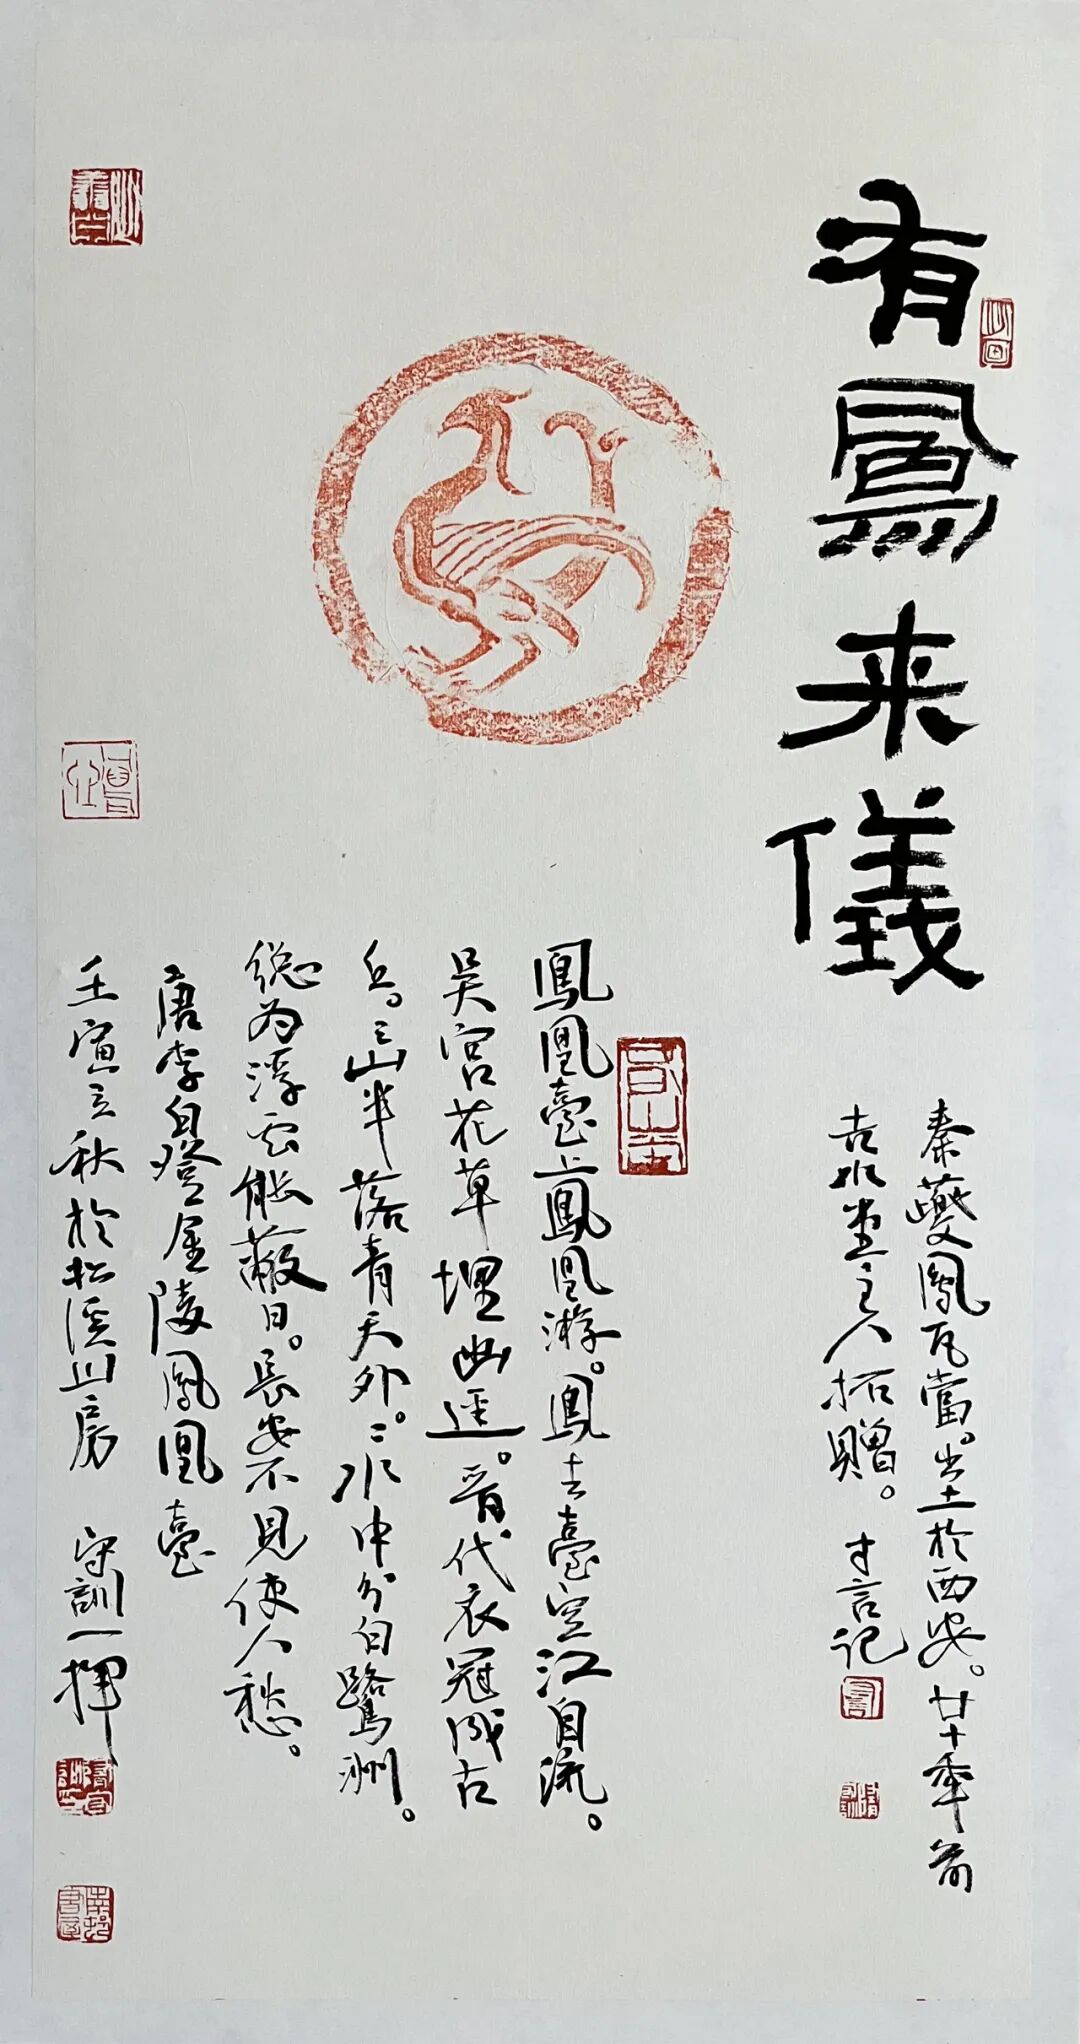 有鳳来儀
秦夔鳳瓦當。出土於西安。廿十年前
吉水堂主人拓贈。 寸言记
鳳凰臺上鳳凰游。鳳去臺空江自流。
吴宫花草埋幽逕。晋代衣冠成古
丘。三山半落青天外。二水中分白鷺洲。
總为浮云能蔽日。長安不見使人愁。
唐李白登金陵鳳凰臺
壬寅立秋於松溪山房 守訓一揮